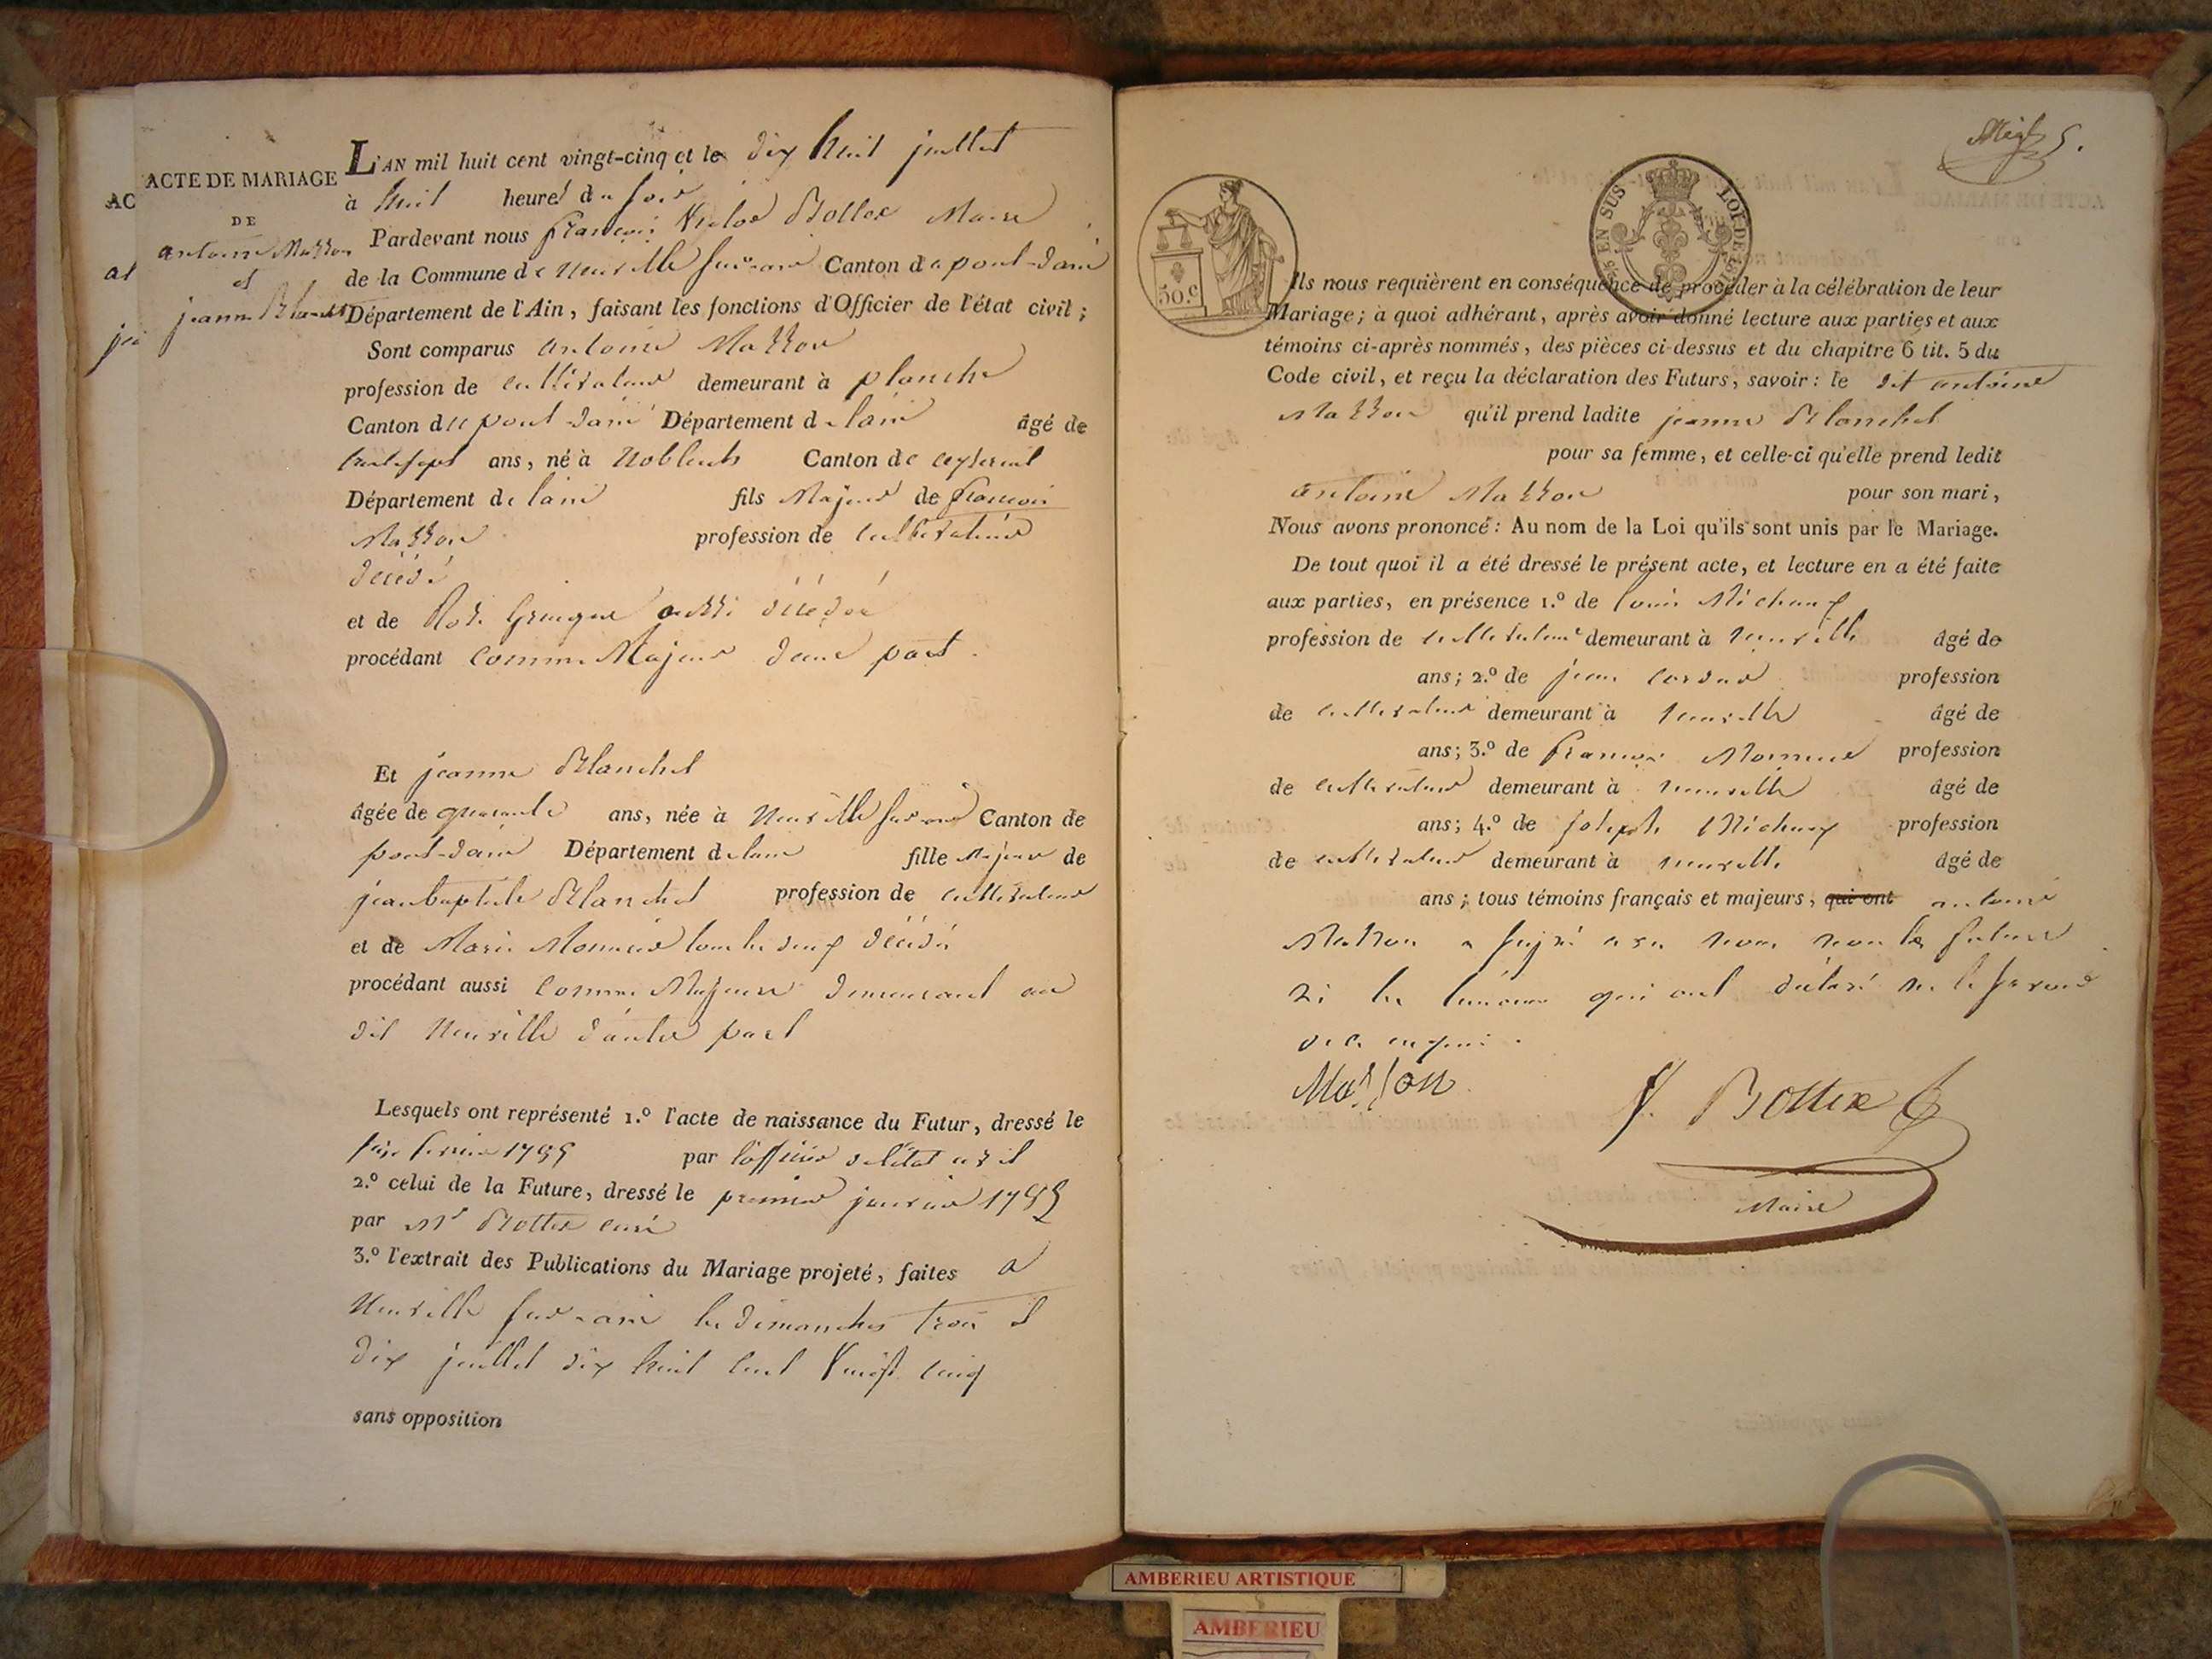 ACTE DE MARIAGE
DE
antoine Masson
et
jeanne Blanchet
AC
L'AN mil huit cent vingt-cinq et le dix huit juillet
à huit heures du soir
Pardevant nous françois Maire
de la Commune de Neuville sur ain Canton de pont-dain
Département de l'Ain, faisant les fonctions d'Officier de l'état civil ;
Sont comparus antoine Masson
profession de cultivateur demeurant à planche
Canton de pont dain Département de lain âgé de
trente sept ans, né à Canton de
Département de lain fils Majeur de françois
Masson profession de cultivateur
décédé
et de aussi décédée
procédant comme Majeur d'une part.
Et jeanne Blanchet
âgée de quarante ans, née à Neuville sur ain Canton de
pont-dain Département de lain fille Majeure de
jean baptiste Blanchet profession de cultivateur
et de Marie tous les deux décédés
procédant aussi comme Majeure demeurant au
dit Neuville d'autre part
Lesquels ont représenté 1.º l'acte de naissance du Futur, dressé le
par l'officier de létat civil
2.º celui de la Future, dressé le premier janvier
par Mr Bottex curé
3.º l'extrait des Publications du Mariage projeté, faites a
Neuville sur ain les dimanches trois et
dix juillet dix huit cent vingt cinq
sans opposition
5.
50.c
EN SUS
LOI DE
Ils nous requièrent en conséquence de procéder à la célébration de leur
Mariage ; à quoi adhérant, après avoir donné lecture aux parties et aux
témoins ci-après nommés, des pièces ci-dessus et du chapitre 6 tit. 5 du
Code civil, et reçu la déclaration des Futurs, savoir : le dit antoine
Masson qu'il prend ladite jeanne Blanchet
pour sa femme, et celle-ci qu'elle prend ledit
antoine Masson pour son mari,
Nous avons prononcé : Au nom de la Loi qu'ils sont unis par le Mariage.
De tout quoi il a été dressé le présent acte, et lecture en a été faite
aux parties, en présence 1.º de louis Michaux
profession de cultivateur demeurant à neuville âgé de
ans ; 2.º de jean profession
de cultivateur demeurant à neuville âgé de
ans ; 3.º de françois profession
de cultivateur demeurant à neuville âgé de
ans ; 4.º de joseph Michaux profession
de cultivateur demeurant à neuville âgé de
ans ; tous témoins français et majeurs, qui ont antoine
Masson a signé avec nous non la future
ni les témoins qui ont déclaré ne le savoir
de ce enquis.
Masson
Bottex
Maire
AMBERIEU ARTISTIQUE
AMBERIEU